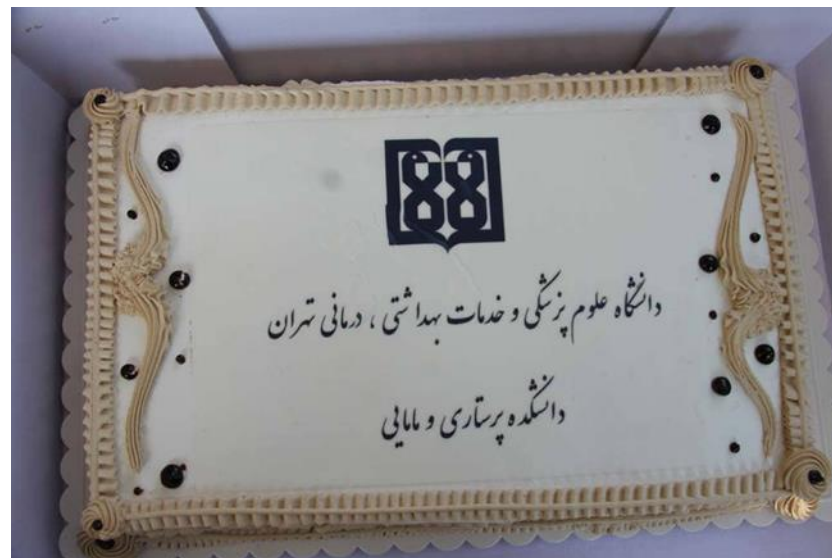 دانشگاه علوم پزشکی و خدمات بهداشتی ، درمانی تهران
دانشکده پرستاری و مامایی